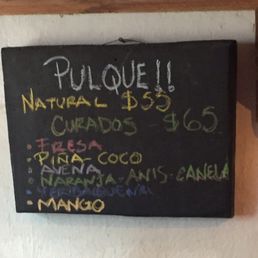 PULQUE!!
NATURAL $55
CURADOS - $65
• FRESA
• PIÑA-COCO
• AVENA
• NARANJA-ANIS-CANELA
• MANGO